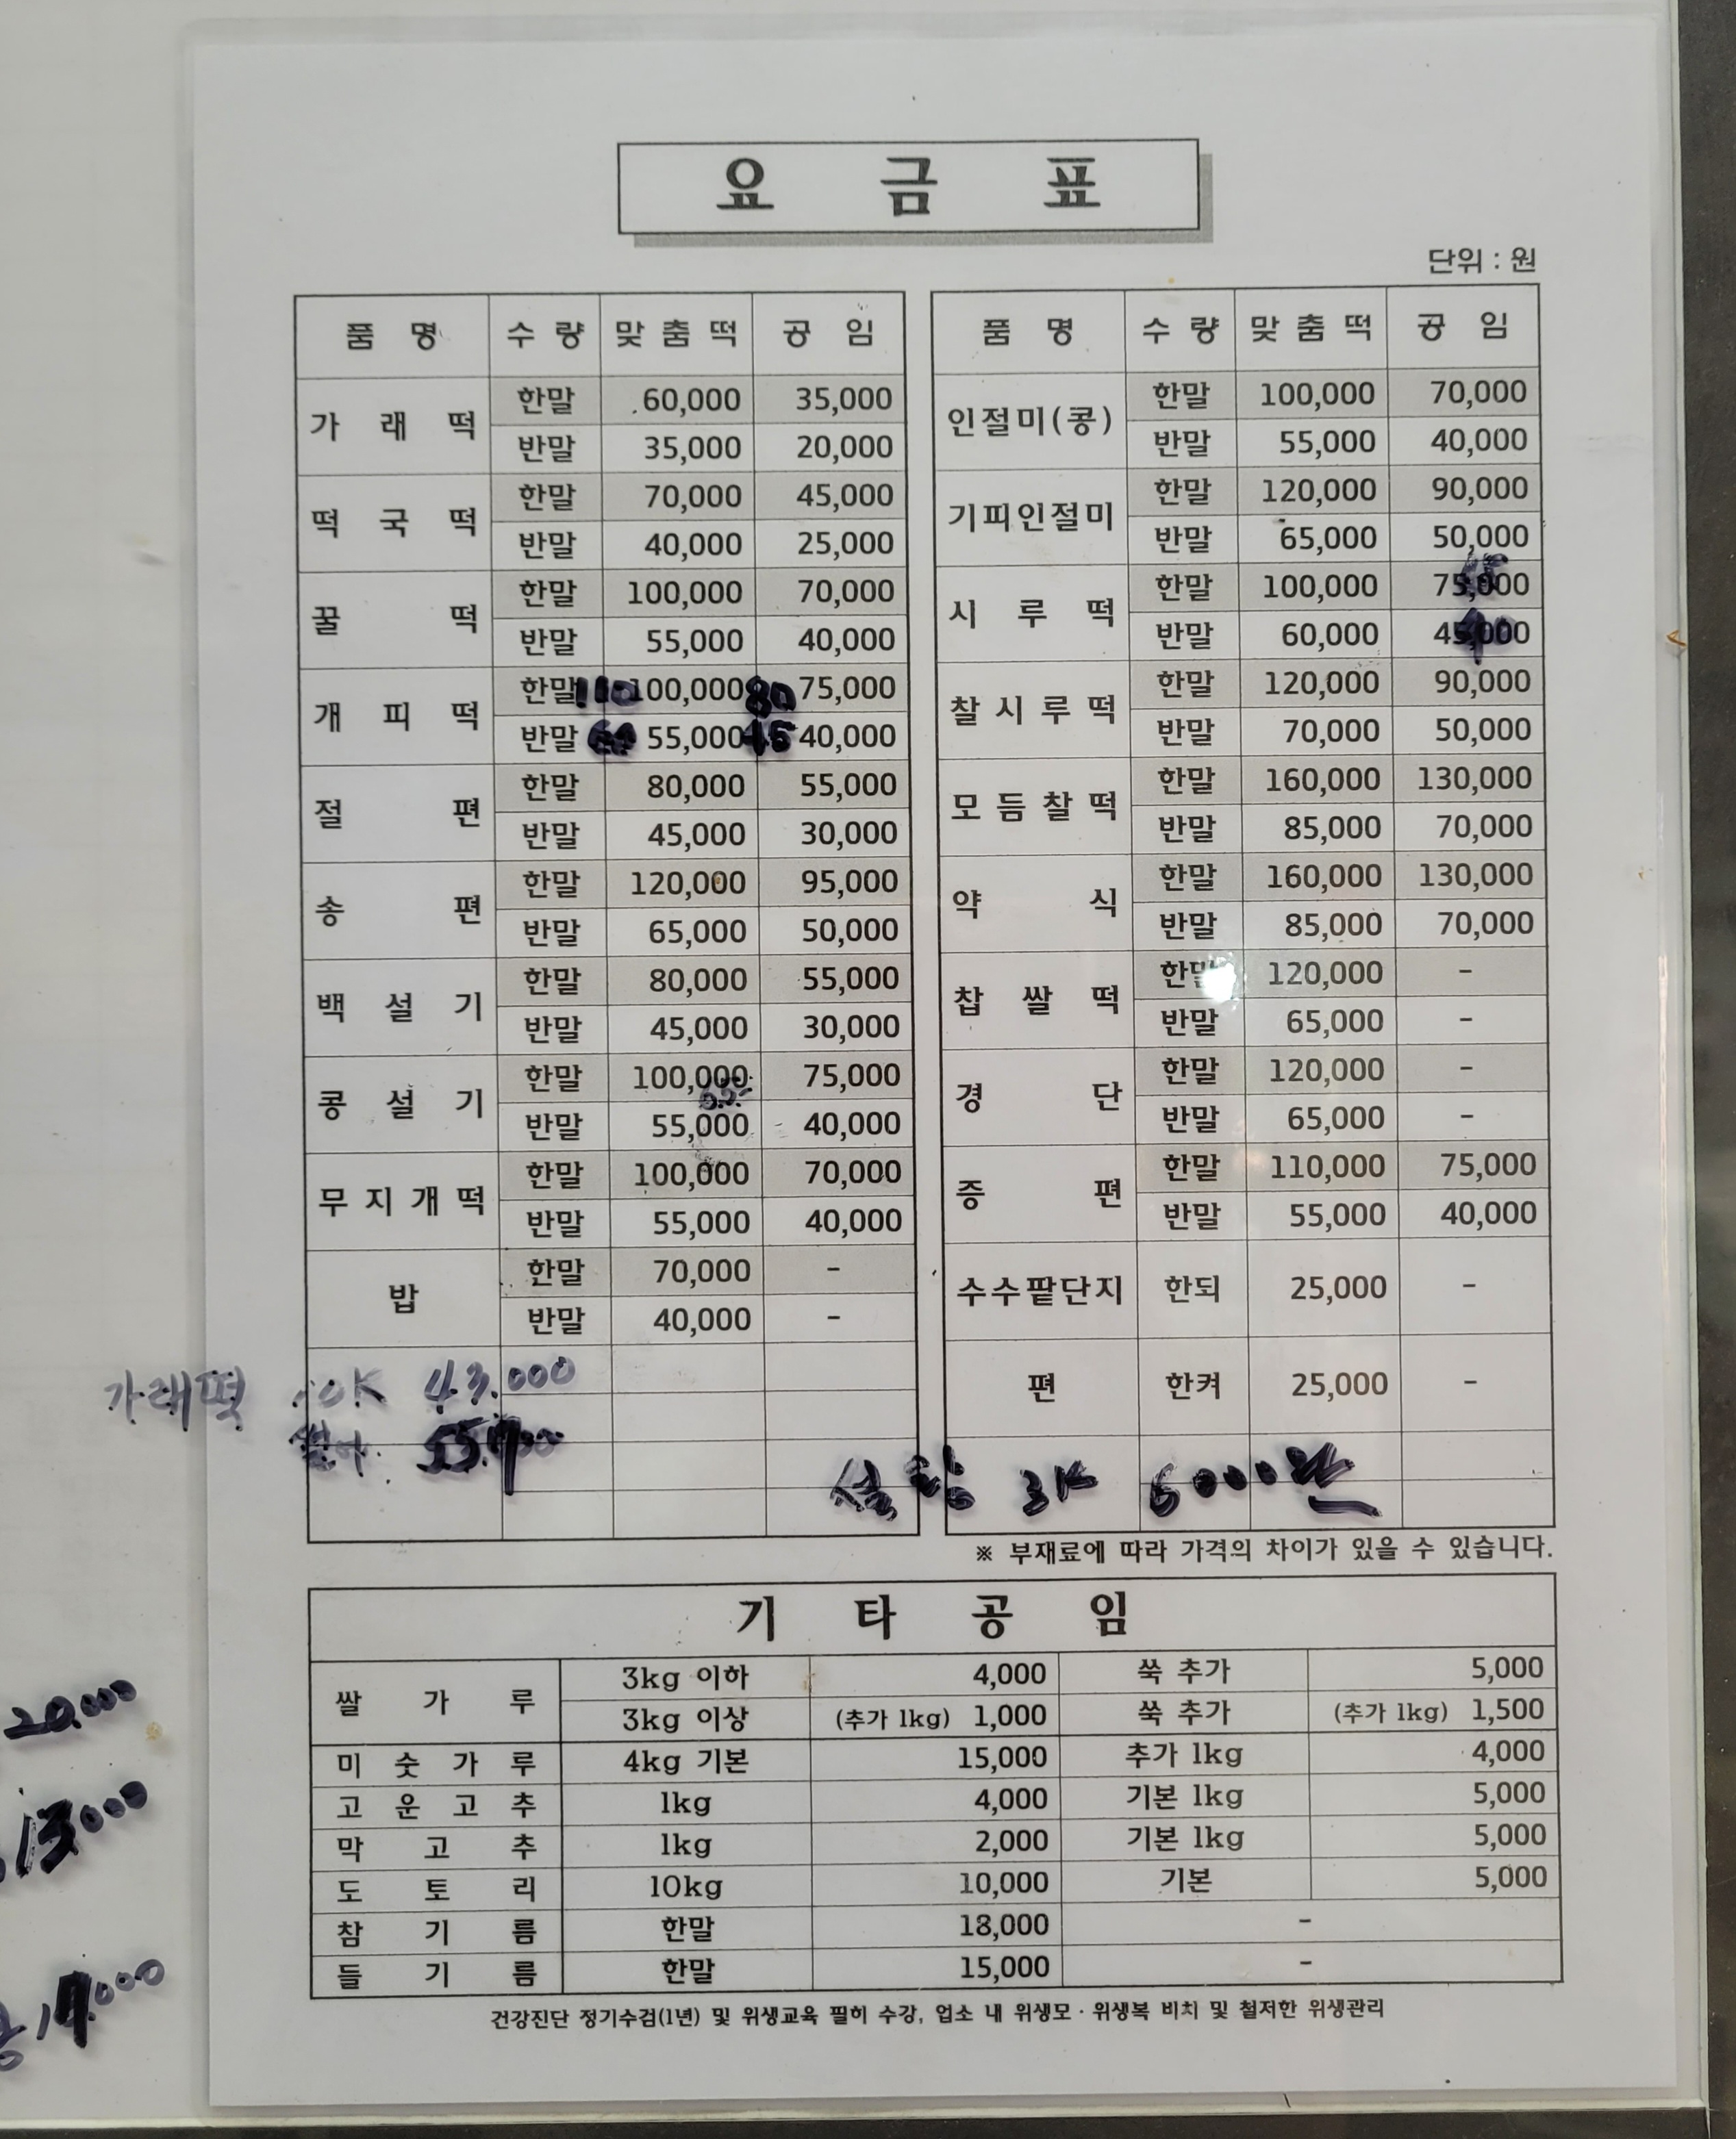 요 금 표
단위 : 원
품 명 수 량 맞 춤 떡 공 임
가 래 떡 한말 60,000 35,000
반말 35,000 20,000
떡 국 떡 한말 70,000 45,000
반말 40,000 25,000
꿀 떡 한말 100,000 70,000
반말 55,000 40,000
개 피 떡 한말 110 100,000 80 75,000
반말 60 55,000 45 40,000
절 편 한말 80,000 55,000
반말 45,000 30,000
송 편 한말 120,000 95,000
반말 65,000 50,000
백 설 기 한말 80,000 55,000
반말 45,000 30,000
콩 설 기 한말 100,000 75,000
반말 55,000 40,000
무 지 개 떡 한말 100,000 70,000
반말 55,000 40,000
밥 한말 70,000 -
반말 40,000 -
가래떡 10K 43.000
품 명 수 량 맞 춤 떡 공 임
인절미(콩) 한말 100,000 70,000
반말 55,000 40,000
기피인절미 한말 120,000 90,000
반말 65,000 50,000
시 루 떡 한말 100,000 75,000
반말 60,000 45,000
찰 시 루 떡 한말 120,000 90,000
반말 70,000 50,000
모 듬 찰 떡 한말 160,000 130,000
반말 85,000 70,000
약 식 한말 160,000 130,000
반말 85,000 70,000
찹 쌀 떡 한말 120,000 -
반말 65,000 -
경 단 한말 120,000 -
반말 65,000 -
증 편 한말 110,000 75,000
반말 55,000 40,000
수수팥단지 한되 25,000 -
편 한켜 25,000 -
설탕 3K 6000원
※ 부재료에 따라 가격의 차이가 있을 수 있습니다.
기 타 공 임
쌀 가 루 3kg 이하 4,000 쑥 추가 5,000
3kg 이상 (추가 1kg) 1,000 쑥 추가 (추가 1kg) 1,500
미 숫 가 루 4kg 기본 15,000 추가 1kg 4,000
고 운 고 추 1kg 4,000 기본 1kg 5,000
막 고 추 1kg 2,000 기본 1kg 5,000
도 토 리 10kg 10,000 기본 5,000
참 기 름 한말 18,000 -
들 기 름 한말 15,000 -
건강진단 정기수검(1년) 및 위생교육 필히 수강, 업소 내 위생모 · 위생복 비치 및 철저한 위생관리
20.000
13000